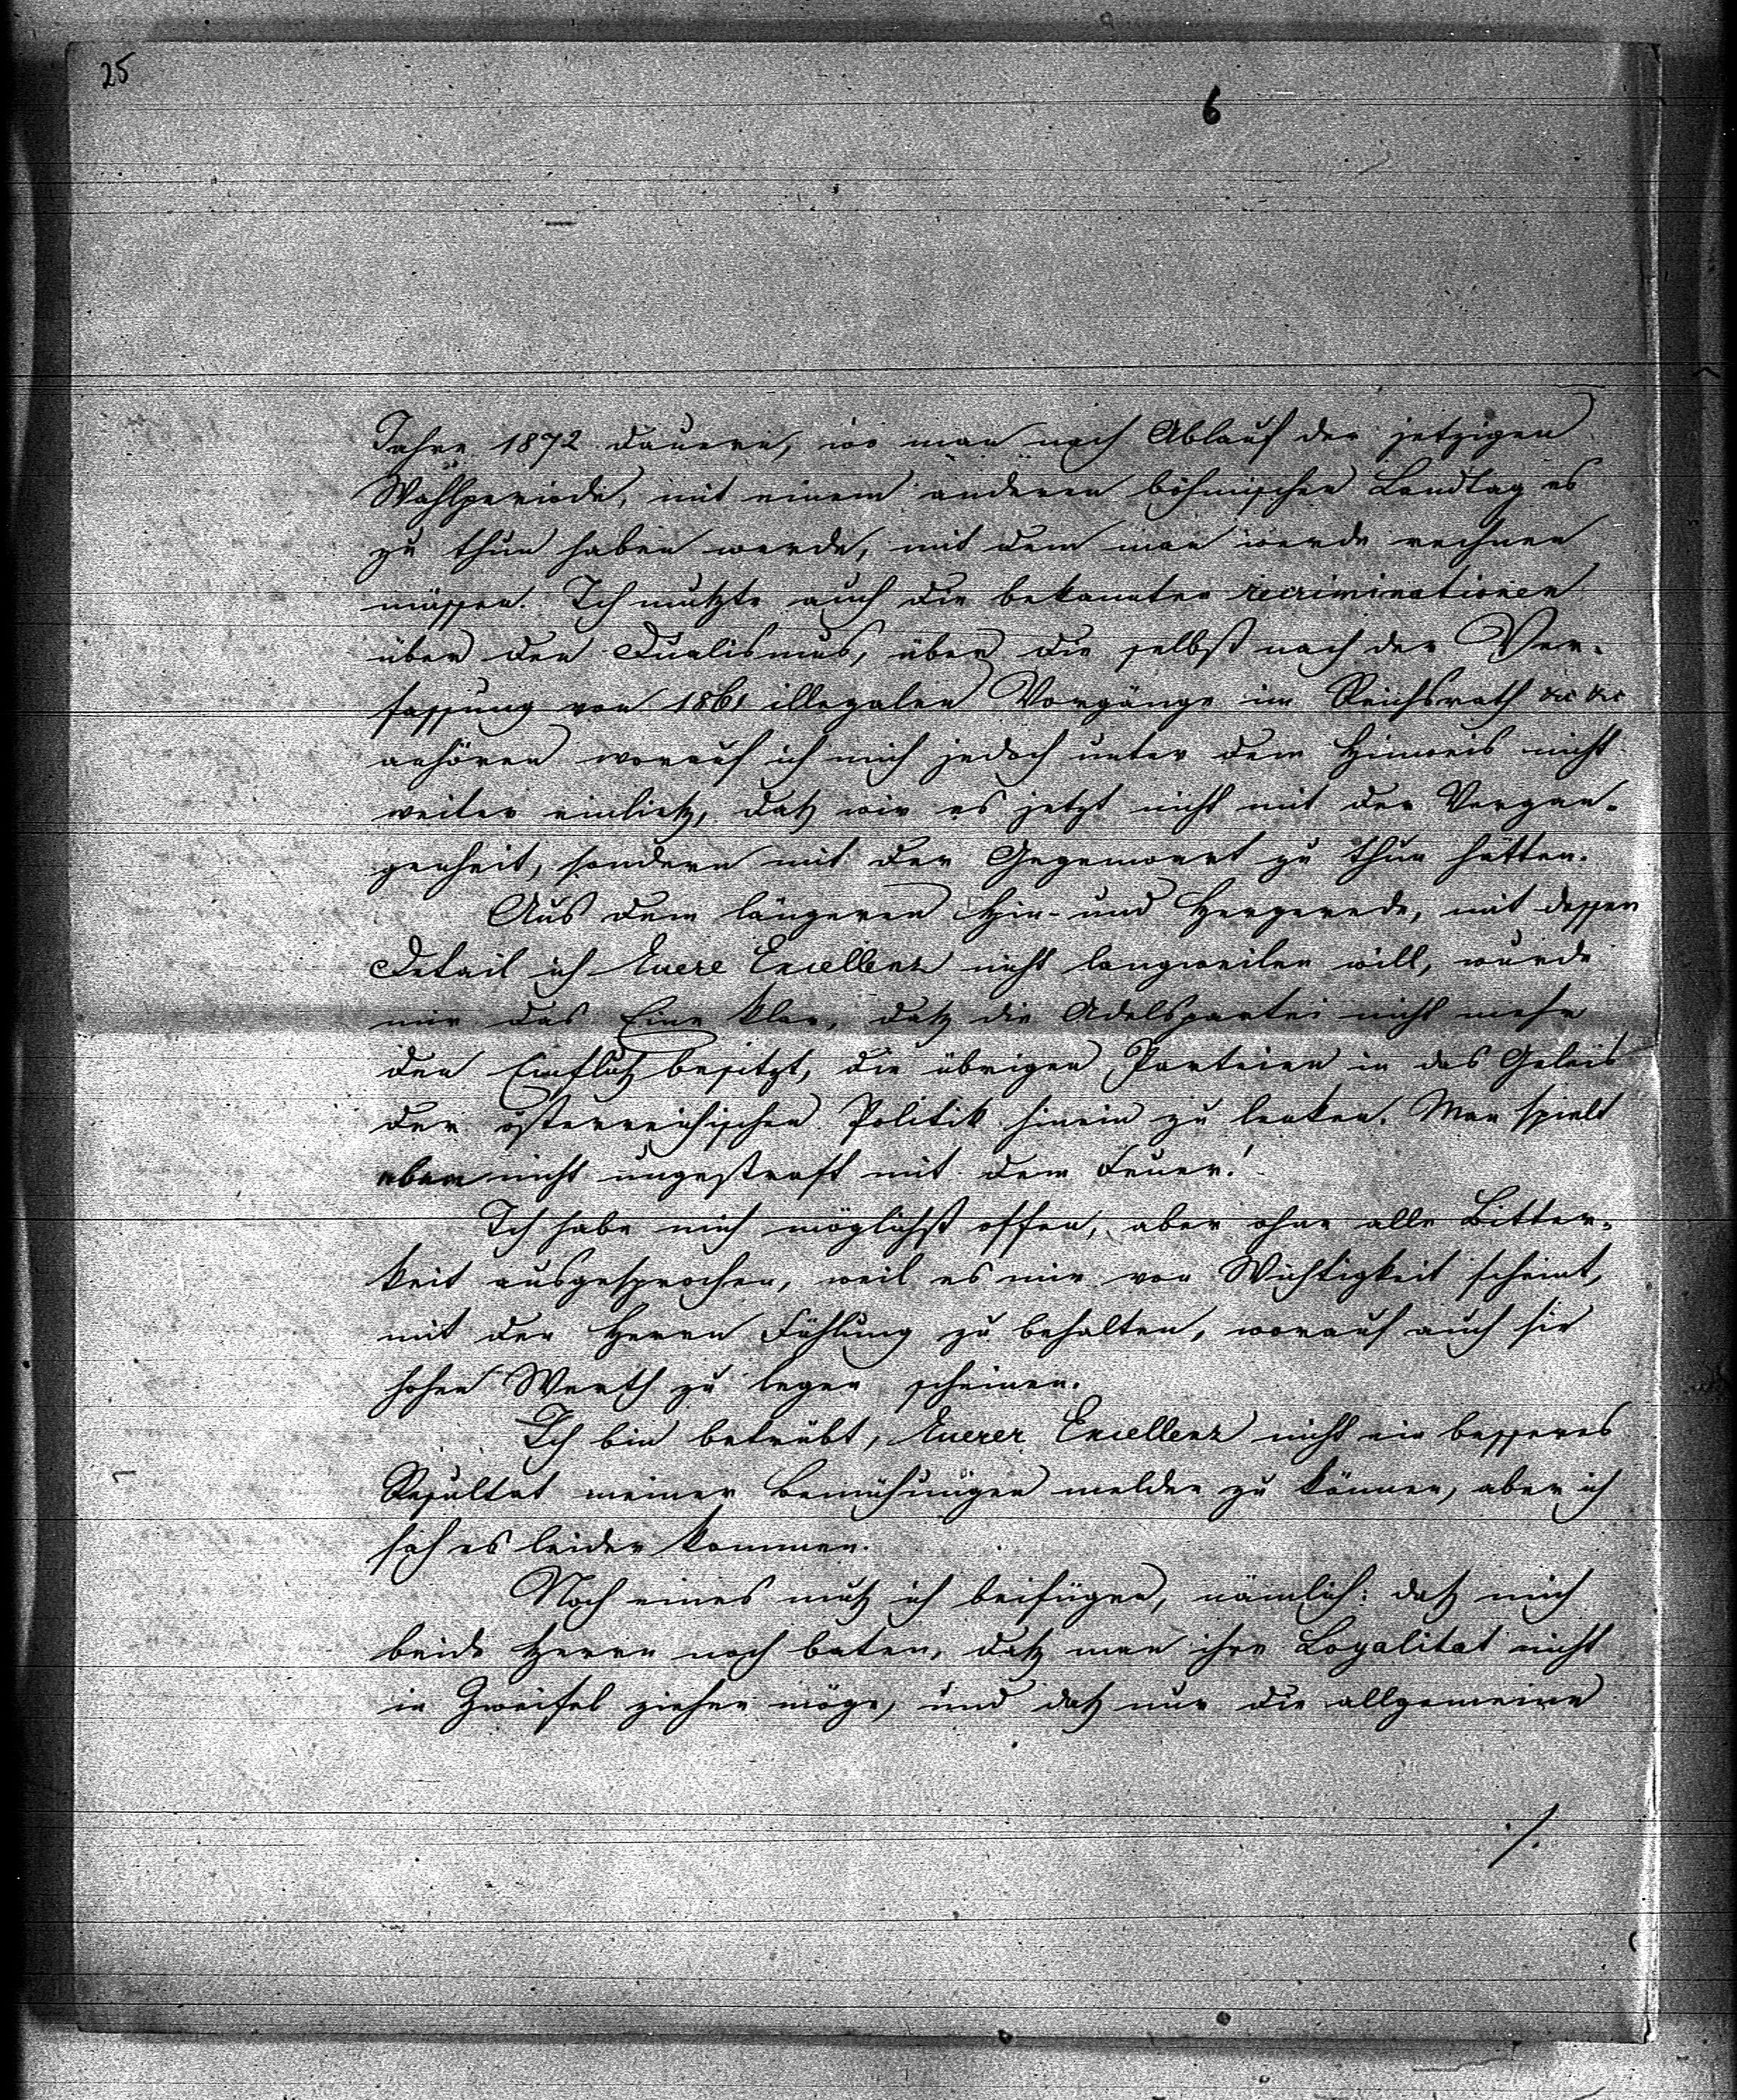 25
6
Jahre 1872 dauern, wo man nach Ablauf der jetzigen
Wahlperiode, mit einem anderen böhmischen Landtag es
zu thun haben werde, mit dem man werde rechnen
müssen. Ich mußte auch die bekannten recriminationen
über den Dualismus, über die selbst nach der Ver-
fassung von 1861 illegalen Vorgänge im Reichsrath &c &c
anhören worauf ich mich jedoch unter dem Hinweis nicht
weiter einließ, daß wir es jetzt nicht mit der Vergan-
genheit, sondern mit der Gegenwart zu thun hätten.
Aus dem längeren Hin- und Hergerede, mit dessen
Detail ich Euere Excellenz nicht langweilen will, wurde
mir das Eine klar, daß die Adelspartei nicht mehr
den Einfluß besitzt, die übrigen Parteien in das Geleis
der österreichischen Politik hinein zu lenken. Man spielt
eben nicht ungestraft mit dem Feuer!
Ich habe mich möglichst offen, aber ohne alle Bitter-
keit ausgesprochen, weil es mir von Wichtigkeit scheint,
mit den Herrn Fühlung zu behalten, worauf auch sie
hohen Werth zu legen scheinen.
Ich bin betrübt, Euerer Excellenz nicht ein besseres
Resultat meiner Bemühungen melden zu können, aber ich
sah es leider kommen.
Noch eines muß ich beifügen, nämlich: daß mich
beide Herrn noch baten, daß man ihre Loyalitat nicht
in Zweifel ziehen möge, und daß nur die allgemeine
./.